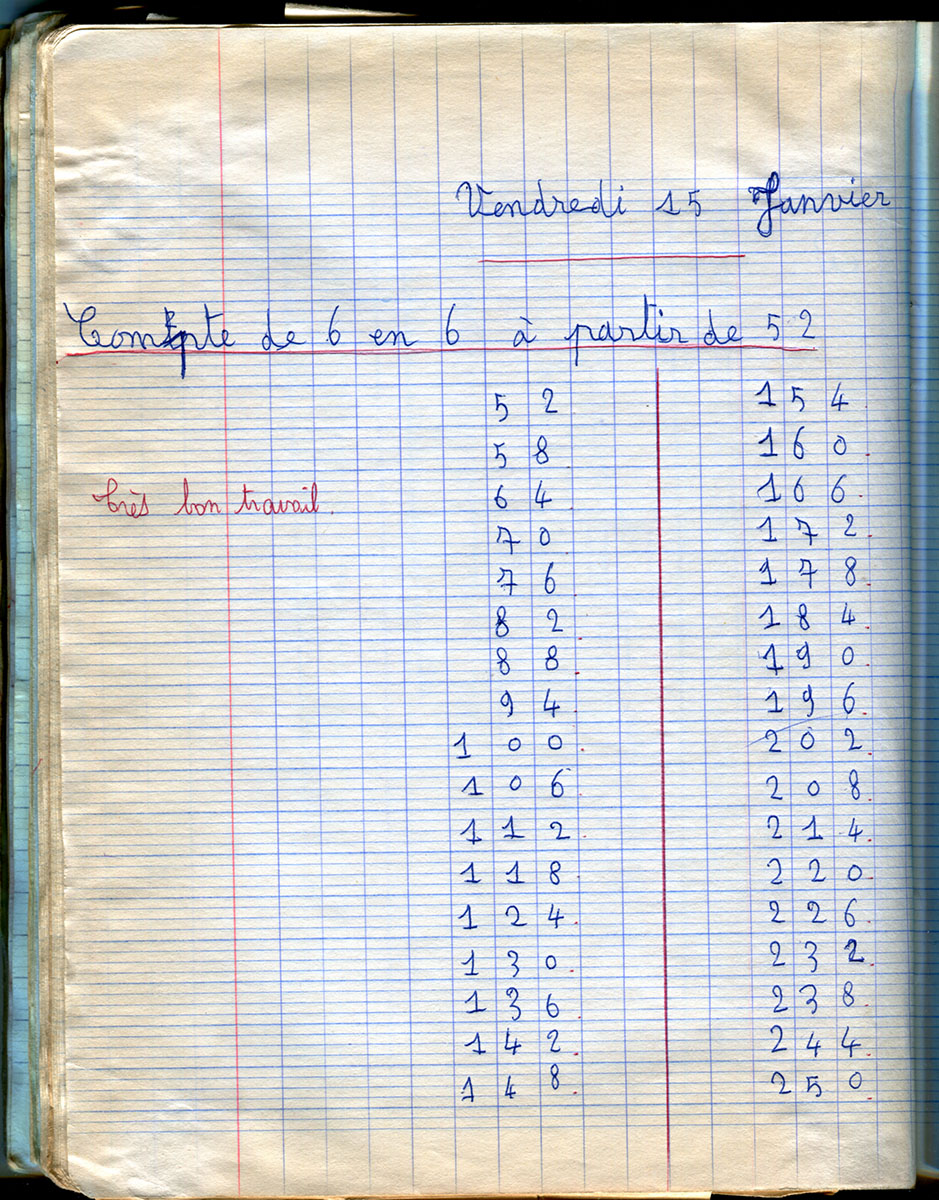 Vendredi 15 Janvier
Compte de 6 en 6 à partir de 52
52
58
Très bon travail.
64
70
76
82
88
94
100
106
112
118
124
130
136
142
148
154
160
166
172
178
184
190
196
202
208
214
220
226
232
238
244
250